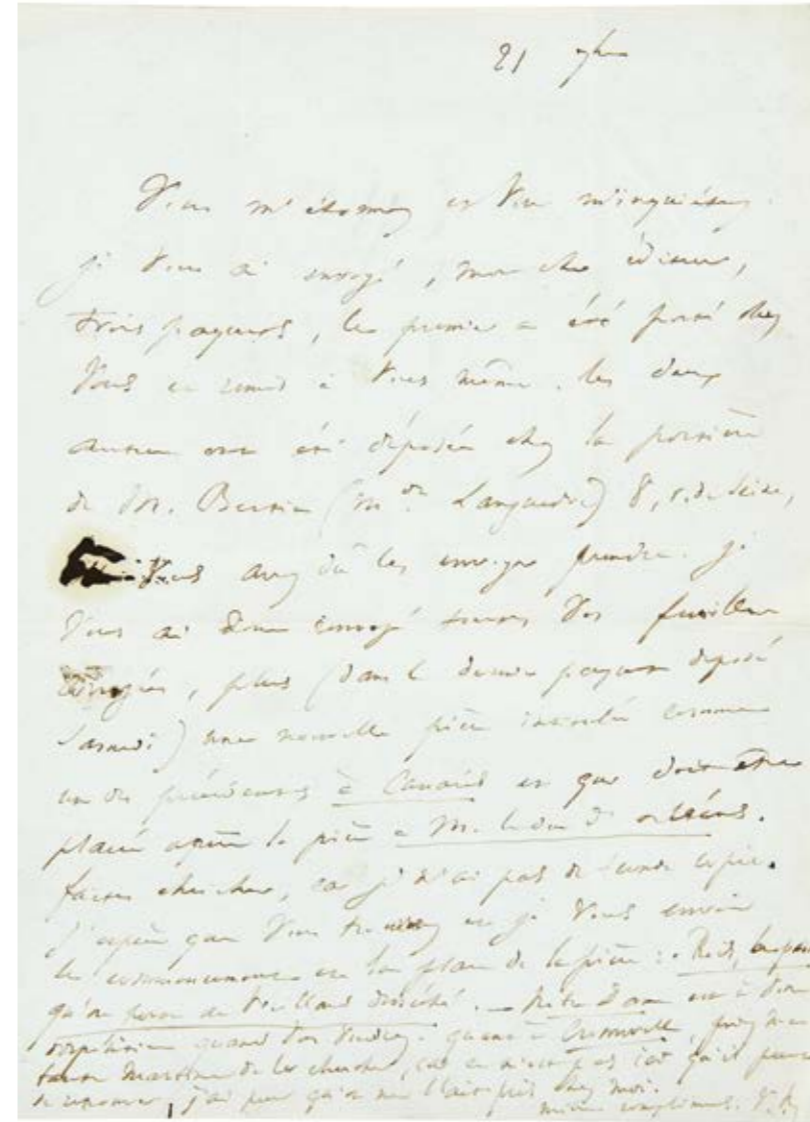 21 7bre
Vous m'étonnez et vous m'inquiétez.
je vous ai envoyé, mon cher éditeur,
trois paquets, le premier a été porté chez
vous et remis à vous même. les deux
autres ont été déposés chez la portière
de M. Bertin (Mde Languedoc) 8, r. de Seine,
Vous avez dû les envoyer prendre. je
vous ai donc envoyé toutes vos feuilles
corrigées, plus (dans le dernier paquet déposé
samedi) une nouvelle pièce intitulée comme
une des précédentes à Canaris et qui doit être
placée après la pièce à M. le duc d'orléans.
faites chercher, car je n'ai pas de seconde copie.
j'espère que vous trouverez et je vous envoie
le commencement et la place de la pièce :
qu'on Notre Dame est à
quand vous voudrez. quant à Cromwell, priez M
Martine de le chercher, car ce n'est pas ici qu'il peut
se retrouver, j'ai peur qu'on ne l'ait pris chez moi.
mille compliments. V. H.